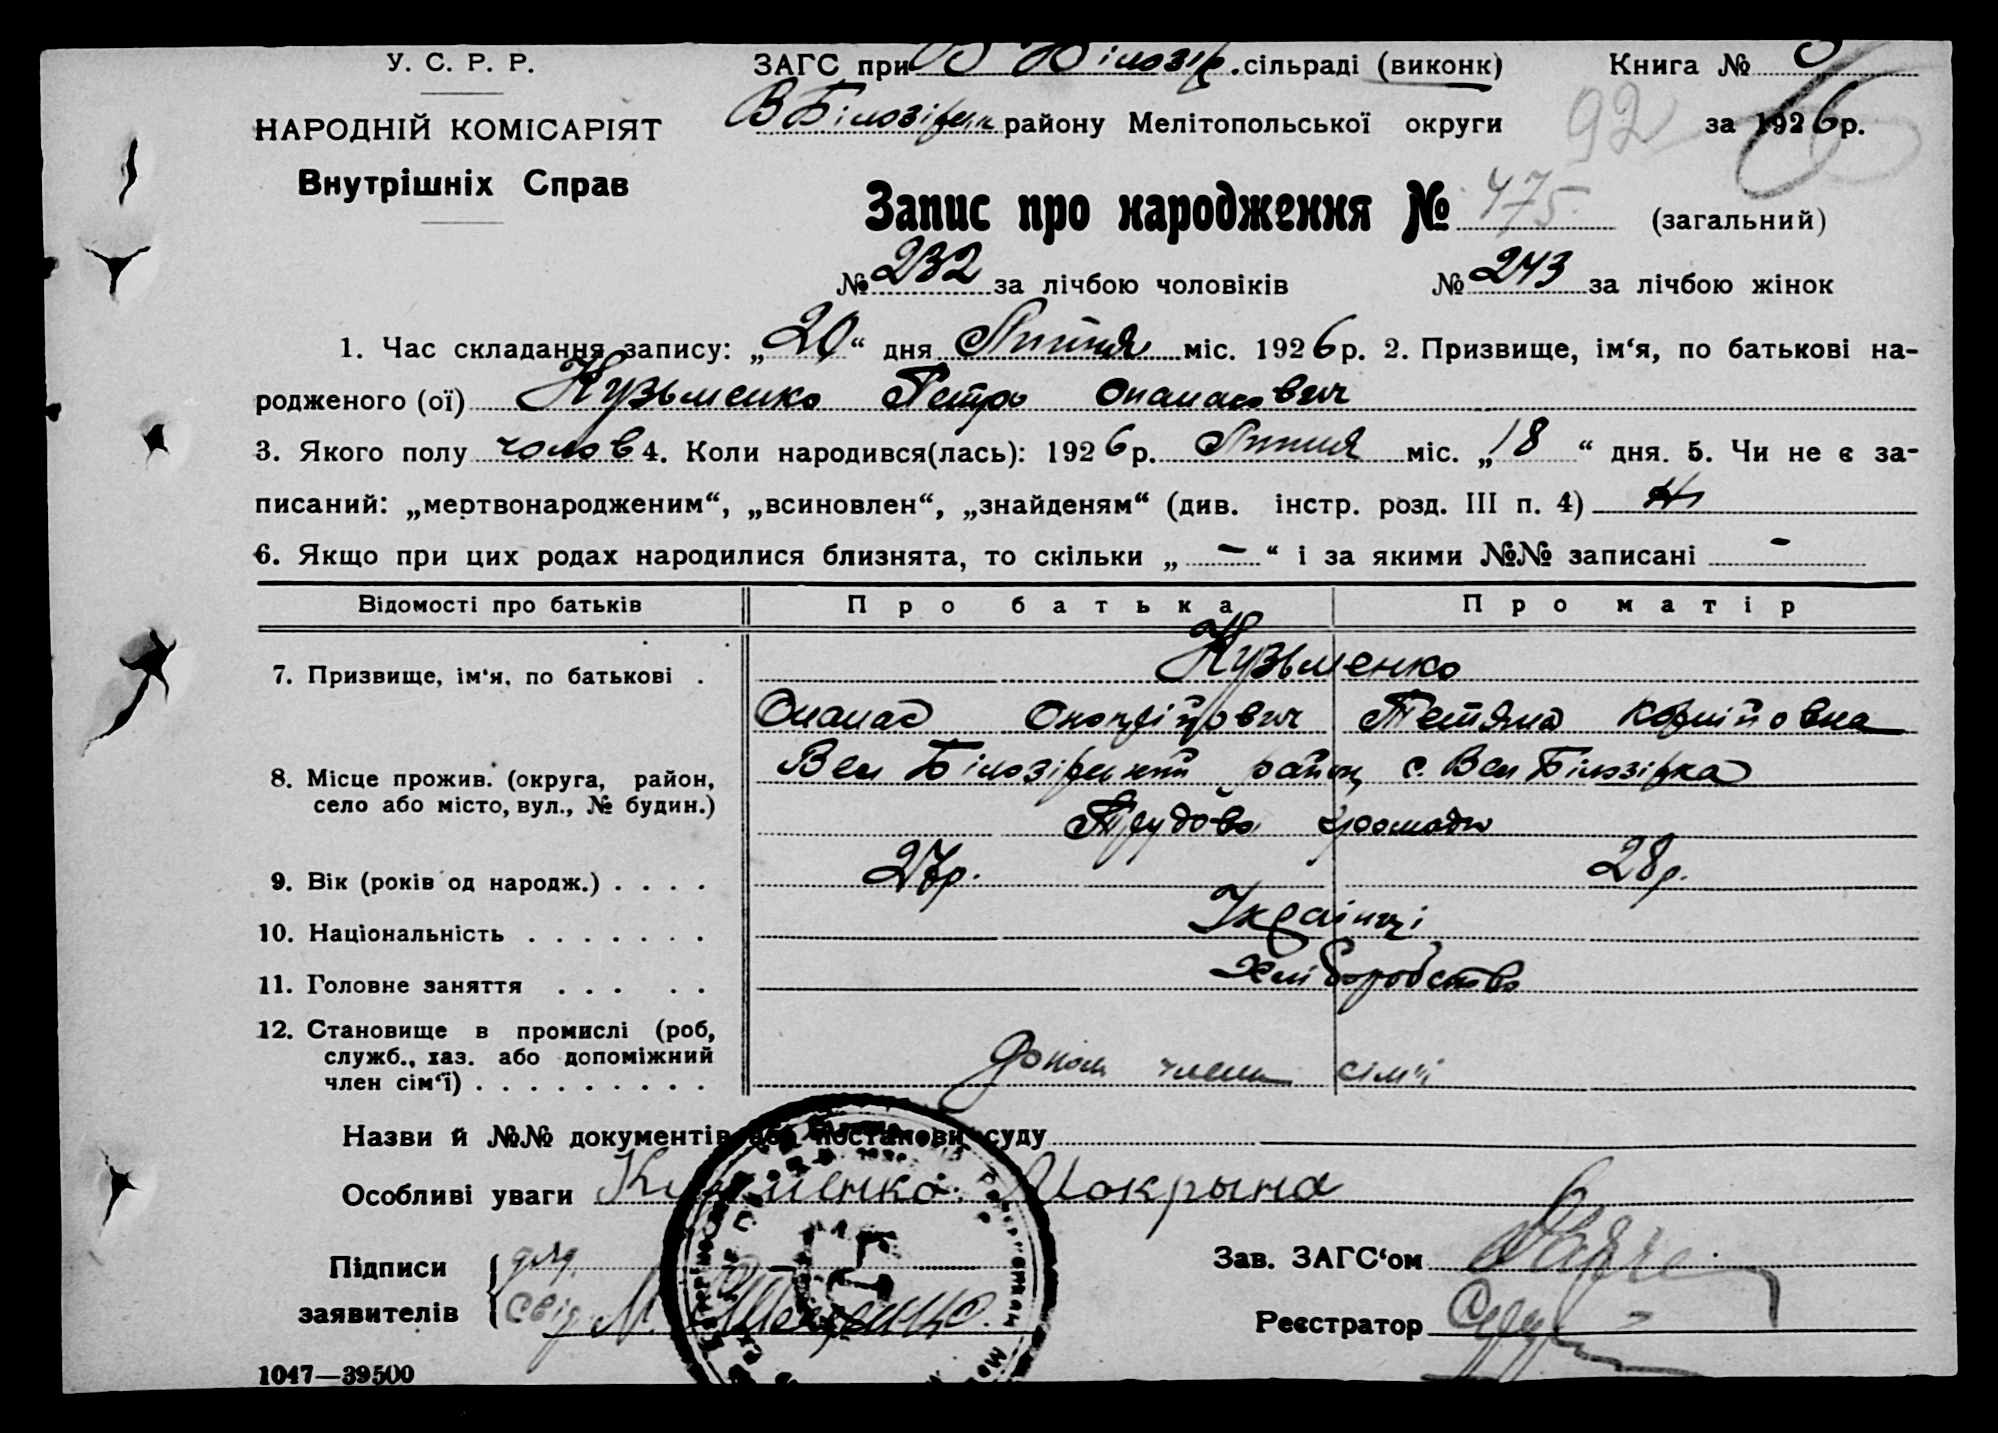 У. С. Р. Р.
ЗАГС при В Білозір. сільраді (виконк)
Книга №
НАРОДНІЙ КОМІСАРІЯТ
Внутрішніх Справ
В Білозірськ району Мелітопольської округи
92
за 1926р.
Запис про народження № 475 (загальний)
№ 232 за лічбою чоловіків № 243 за лічбою жінок
1. Час складання запису: „20“ дня Липня міс. 1926р. 2. Призвище, ім‘я, по батькові на-
родженого (ої) Кузьменко Петро Опанасович
3. Якого полу чолов 4. Коли народився(лась): 1926р. Липня міс. „18“ дня. 5. Чи не є за-
писаний: „мертвонародженим“, „всиновлен“, „знайденям“ (див. інстр. розд. III п. 4) Ні
6. Якщо при цих родах народилися близнята, то скільки „ – “ і за якими №№ записані –
Відомості про батьків Про батька Про матір
7. Призвище, ім‘я, по батькові . Кузьменко
Опанас Тетяна
8. Місце прожив. (округа, район, село або місто, вул., № будин.) Вел Білозірський район, с. Вел Білозірка
Трудова громада
9. Вік (років од народж.) . . . . 27р. 28р.
10. Національність . . . . . . . Українці
11. Головне заняття . . . . . Хліборобство
12. Становище в промислі (роб,
служб., хаз. або допоміжний
член сім‘ї) . . . . . . . . . члени сім'ї
Назви й №№ документів або постанови суду
Особливі уваги Кузьменко Мокрына
Підписи
заявителів
Свід М.
Зав. ЗАГС‘ом
Реєстратор
1047—39500